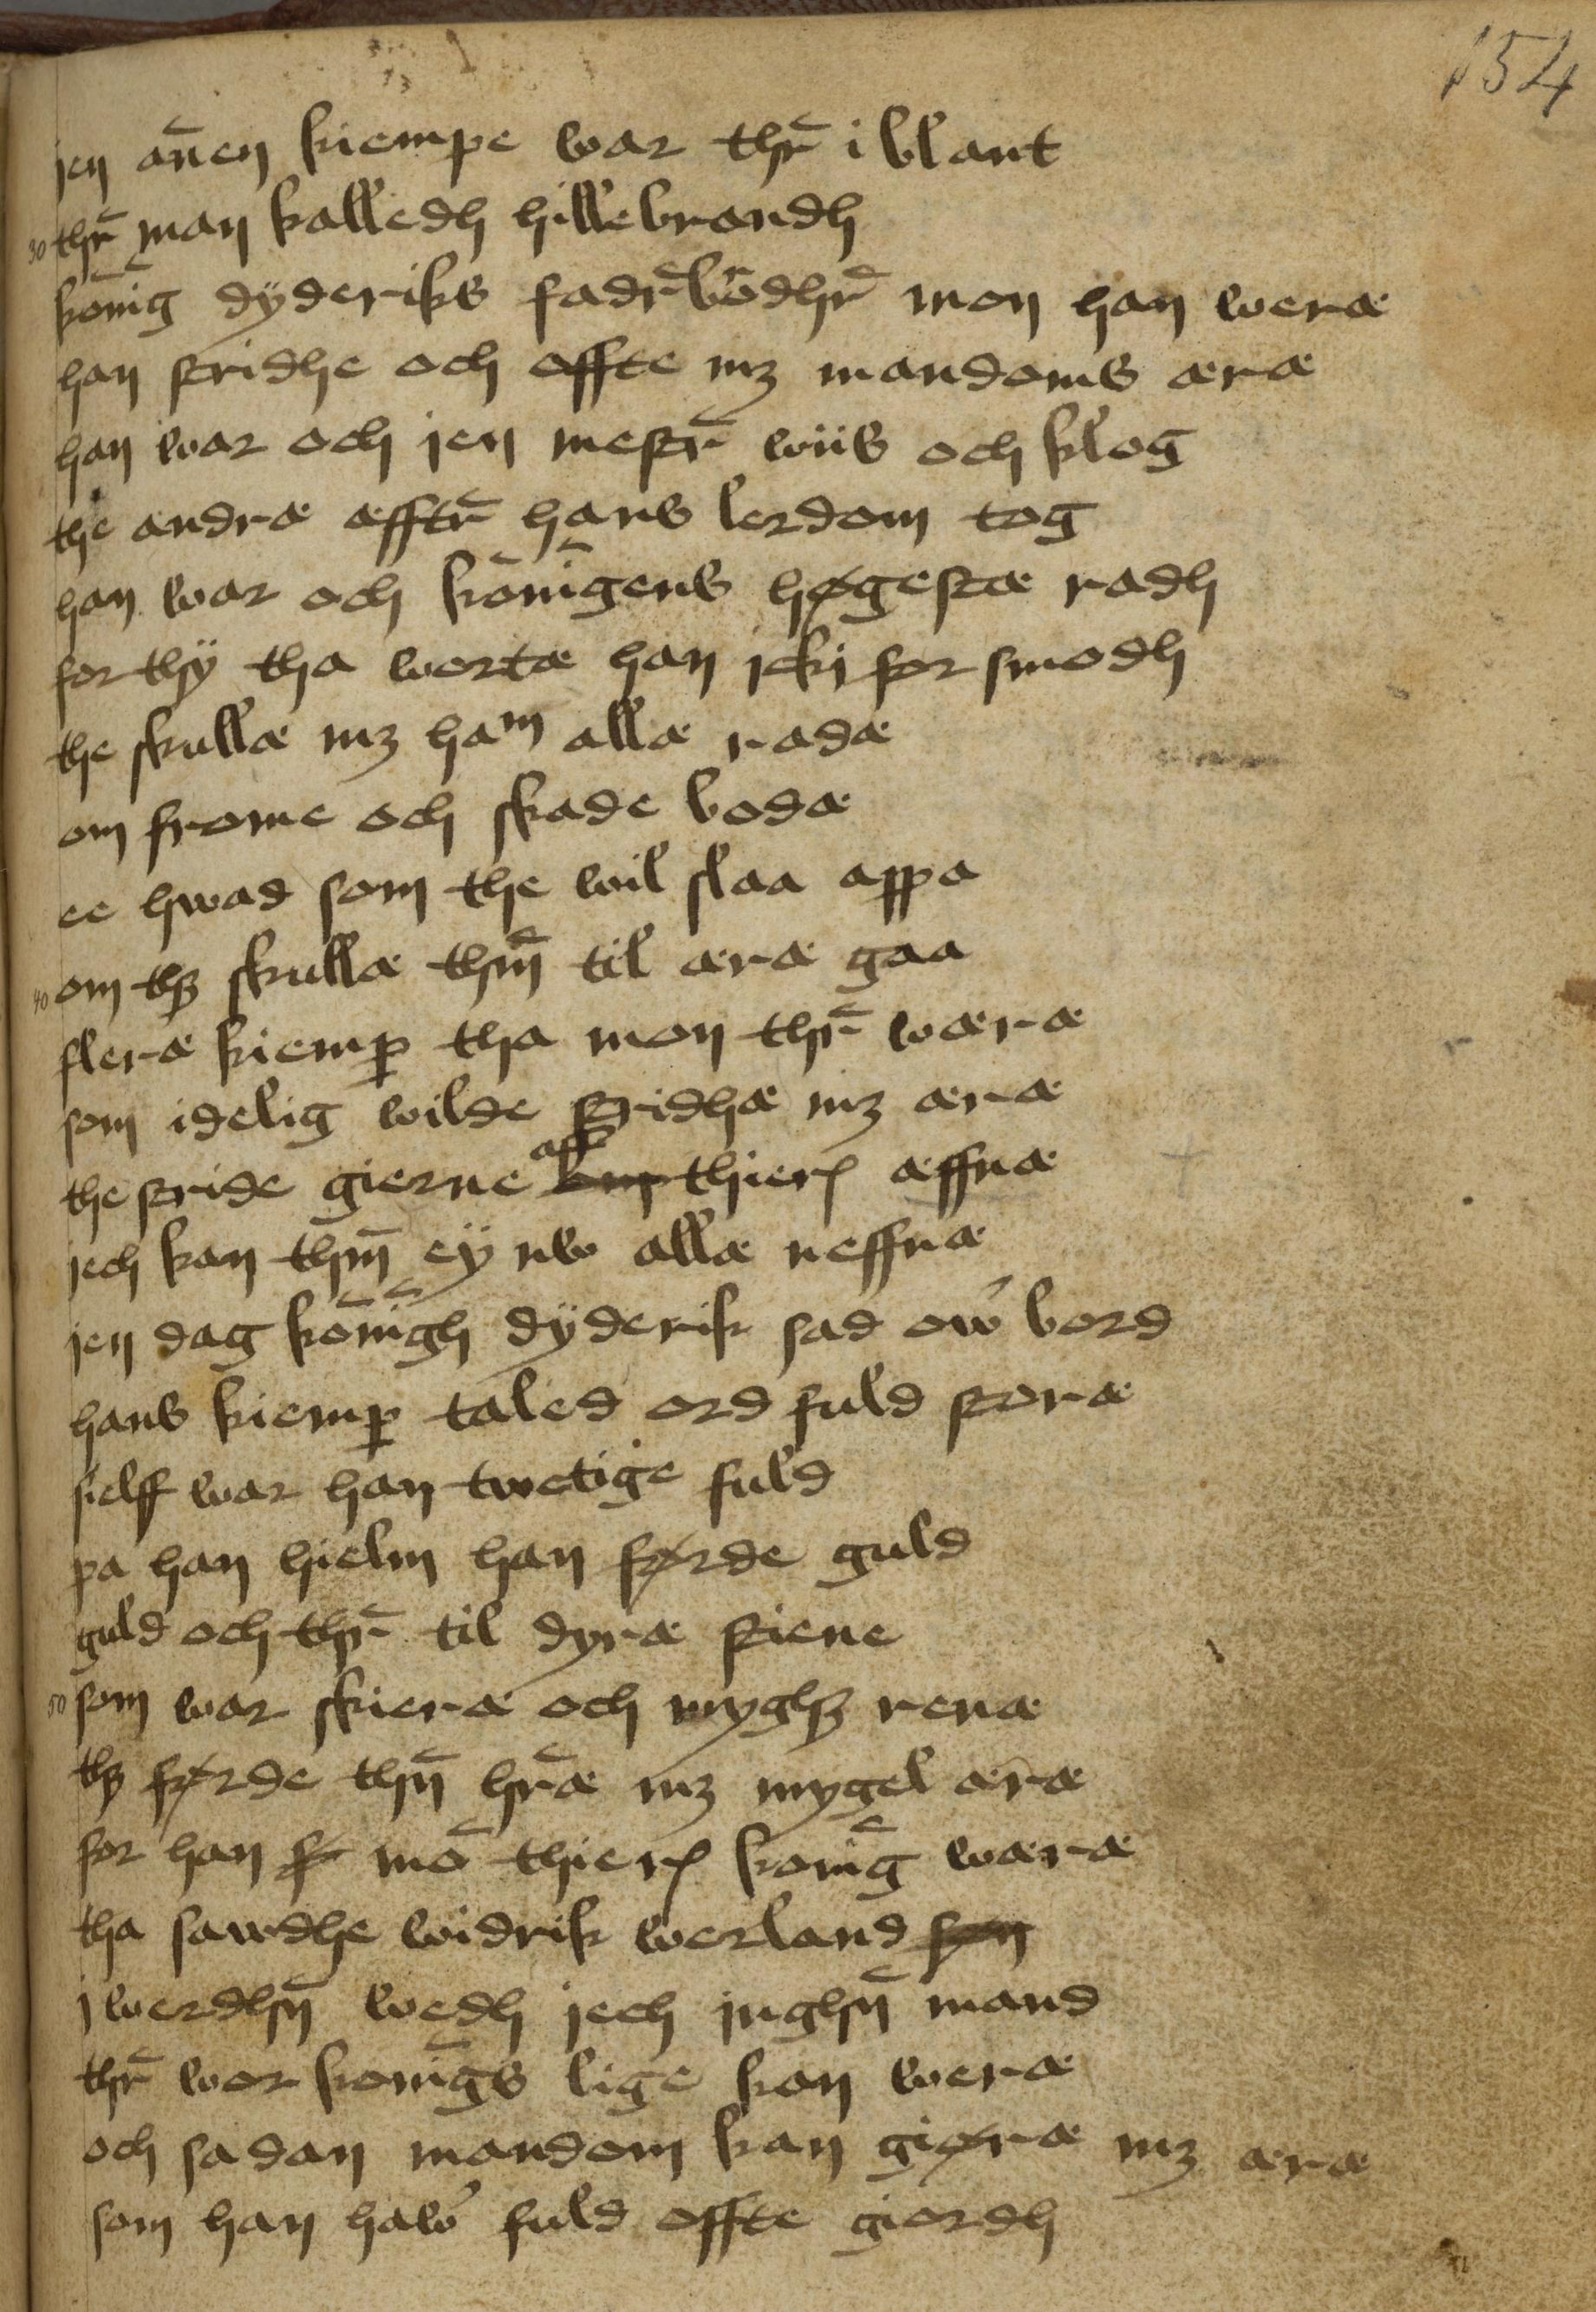 154
jen an̄en kiempe war thr̄ i blant
30 thr̄ man kalledh hillebrandh
kōnig dÿderiks fadr̄brodhr̄ mon han weræ
han stridhe och offte mȝ mandoms æræ
han war och jen mestr̄ wiis och klog
the andræ æfftr̄ hans lerdom tog
han war och kōnīgens høgestæ radh
for thÿ tha wortæ han jcki for smodh
the skullæ mȝ ham allæ radæ
om frome och skade bodæ
ee hwad som the wil slaa appa
40 om thȝ skullæ thm̄ til æræ gaa
fleræ kiemꝑ tha mon thr̄ wæræ
som idelig wilde stridhæ mȝ æræ
the stride gierne aff thierꝭ æffnæ
jech kan thm̄ eÿ nw allæ neffnæ
jen dag kōnīgh dÿderik sad ow̉ bord
hans kiemꝑ taled ord fuld storæ
sielff war han twetige fuld
pa han hielm han førde guld
guld och thr̄ til dyræ stiene
50 som war skieræ och myghȝ renæ
thȝ førde thn̄ hr̄æ mȝ mygel æræ
for han mō thierꝭ konīg wæræ
tha sawdhe widrik werland søn
j werdhn̄ wedh jech jnghn̄ mand
thr̄ wor konīgs lige kan weræ
och sadan mandom kan giøræ mȝ æræ
som han haw̉ fuld offte giordh